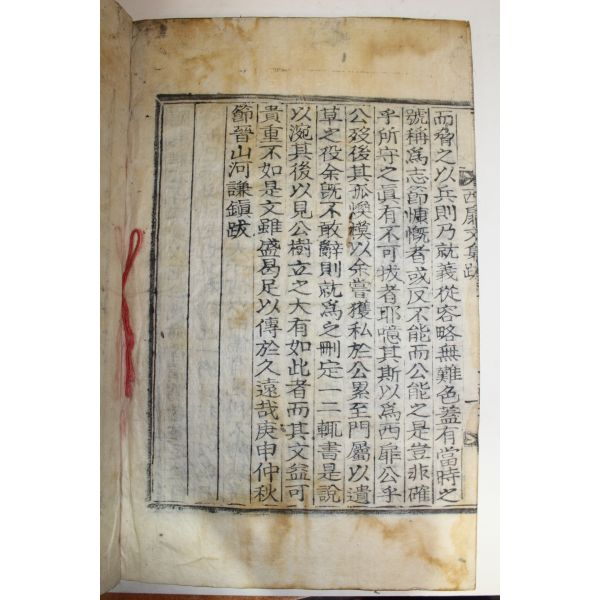 西扉文集跋
而脅之以兵則乃就義從容略無難色蓋有當時之
號稱爲志節慷慨者或反不能而公能之是豈非確
乎所守之眞有不可拔者耶噫其斯以爲西扉公乎
公歿後其孤燦模以余嘗獲私於公累至門屬以遺
草之役余旣不敢辭則就爲之刪定一二輒書是說
以涴其後以見公樹立之大有如此者而其文益可
貴重不如是文雖盛曷足以傳於久遠哉庚申仲秋
節晉山河謙鎭跋